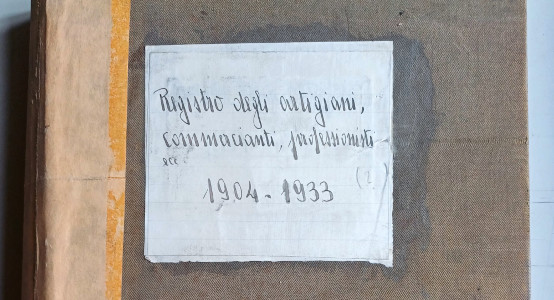 Registro degli artigiani,
commercianti, professionisti
ecc.
(?)
1904 - 1933